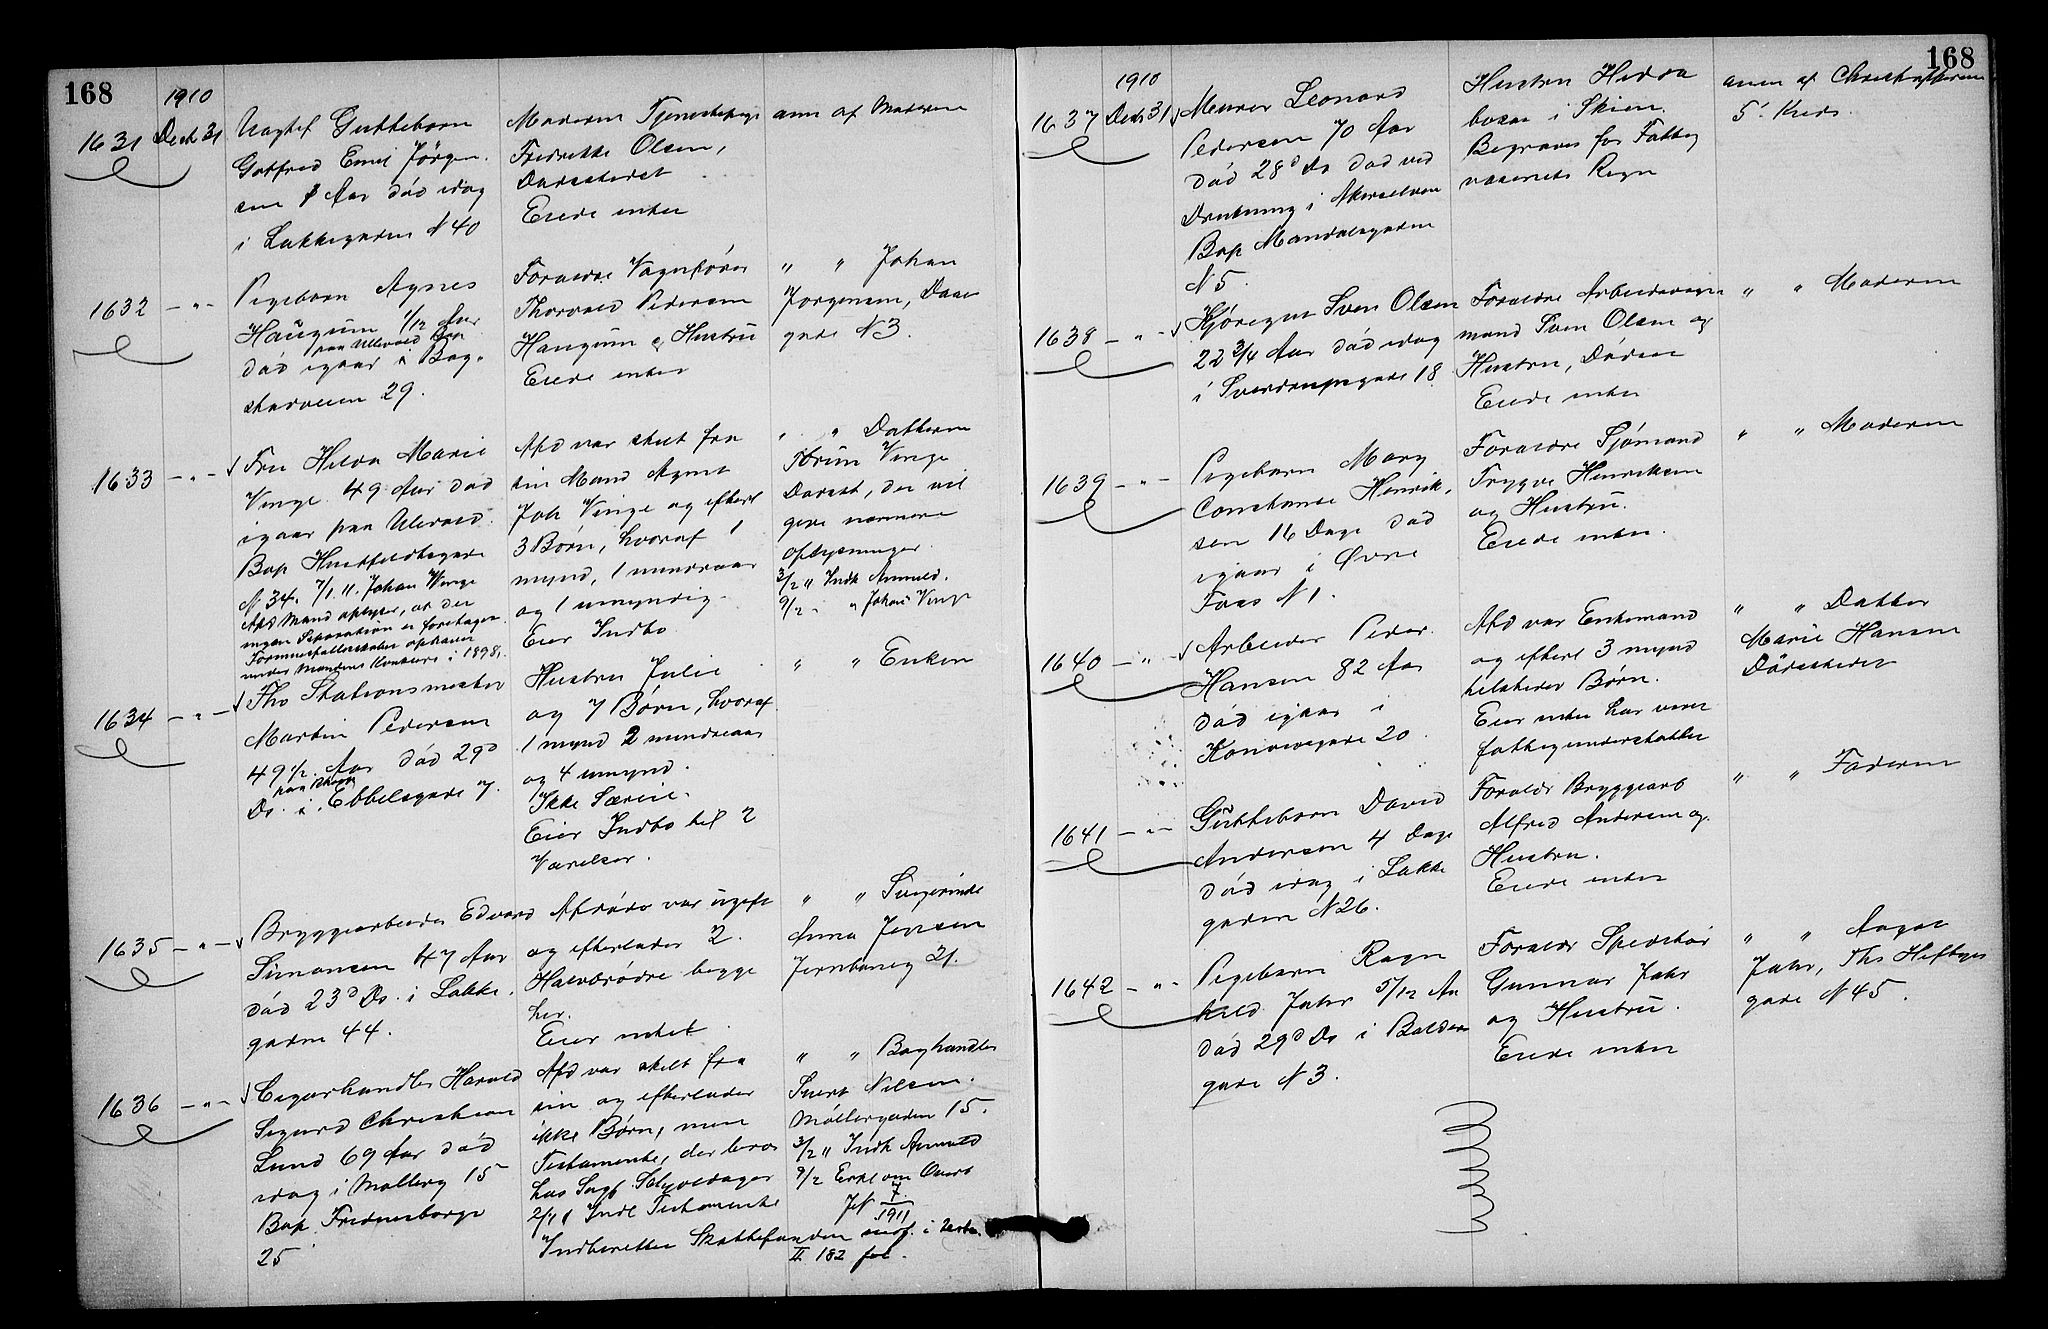 168
1910
1631 Decb 31 Uægtef Guttebarn
Gotfred Emil Jörgen.
sen Aar död idag
i Lakkegaden N 40
Moderen Tjenestepige
Fredrikke Olsen,
Darsteds
Eiede intet
anm af Moderen
1632 — " — Pigebarn Agnes
Haugum 1/12 Aar
paa Ullevold
död igaar i Bog.
stadveien 29.
Forældre Vognkörer
Thorvald Pedersen
Haugum og Hustru
Eiede intet
" " Johan
Jorgensen, Daae
gade N 3.
1633 — " — Fru Hilda Marie
Vinge 49 Aar död
igaar paa Ulevold.
Bop Huitfeldtsgade
N 34. 7/1 11. Johan Vinge
Afd Mand oplyser, at der
ingen Separation er foretagen.
Formuesfællesskabet ophævet
under Mandens Konkurs i 1898.
Afd var skilt fra
sin Mand Agent
Joh Vinge og efterl
3 Börn, hvoraf 1
mynd, 1 mindreaar
og 1 umyndig.
Eier Indbo
" " Datteren
Vinge
Darst, der vil
give nærmere
oplysninger.
3/2 " Indk Anmeld.
9/2 " " Johan Vinge
1634 — " — Fhv Stationsmester
Martin Pedersen
49 1/2 Aar död 29d
Ds. i Ebbelsgade 7.
Hustru Julie
og 7 Börn, hvoraf
1 mynd 2 mindreaar
og 4 umynd.
Ikke Særeie.
Eier Indbo til 2
Værelser.
" " Enken
1635 — " — Bryggearbeider Edvard
Simonsen 47 Aar
död 23d Ds. i Lakke.
gaden 44.
Afdöde var ugift
og efterlader 2.
Halvbrödre begge
her.
Eier intet
" " Svigerinde
Anna Jensen
Jernbaneg 21.
1636 — " — Cigarhandler Harald
Sigurd Christian
Lund 69 Aar död
idag i Mollerg 15
Bop Fredensborgv
25
Afd var skilt fra
sin og efterlader
ikke Börn, men
Testamente, der beror
hos Sagf Schjveldager
2/1 11 Indl Testamente
Indberettet Skattefunden i
II 182
" " Boghandler
Sivert Nilsen.
Möllergaden 15.
3/2 " Indk Anmeld
9/2 Erkl om Overt
JN 7/1911
168
1910
1637 Decb 31 Murer Leonard
Pedersen 70 Aar
död 28d Ds död ved
Drukning i Akerselven
Bop Mandalsgaden
N 5.
Hustru Hedda
bosat i Skien.
Begraves for Fattig
væsenets Regn
anm af Christophersen
5' Kreds.
1638 — " — Kjöregut Sven Olsen
22 3/4 Aar död idag
i Sverdrupsgade 18.
Forældre Arbeidsvogn
mand Sven Olsen og
Hustru, Döden
Eiede intet
" " Moderen
1639 — " — Pigebarn Mary
Constanse Henrik.
sen 16 Dage död
igaar i Övre
Foss N 1.
Forældre Sjömand
Trygve Henriksen
og Hustru.
Eiede intet.
" " Moderen
1640 — " — Arbeider Peder
Hansen 82 Aar
död igaar i
Korsvegade 20.
Afd var Enkemand
og efterl 3 mynd
tilsteder Börn.
Eier intet har været
fattigunderstöttet
" " Datter
Marie Hansen
Dödsstedet
1641 — " — Guttebarn David
Andersen 4 Dage
död idag i Lakke
gaden N 26.
Forældr Bryggearb
Alfred Andersen og
Hustru.
Eiede intet
" " Faderen
1642 — " — Pigebarn Ragn
hild Jahr 5/12 Aar
död 29d Ds i Balders
gade N 3.
Forældr Speditör
Gunnar Jahr
og Hustru.
Eiede intet
" " Aagot
Jahr, Ths Heftyes
gade N 45.